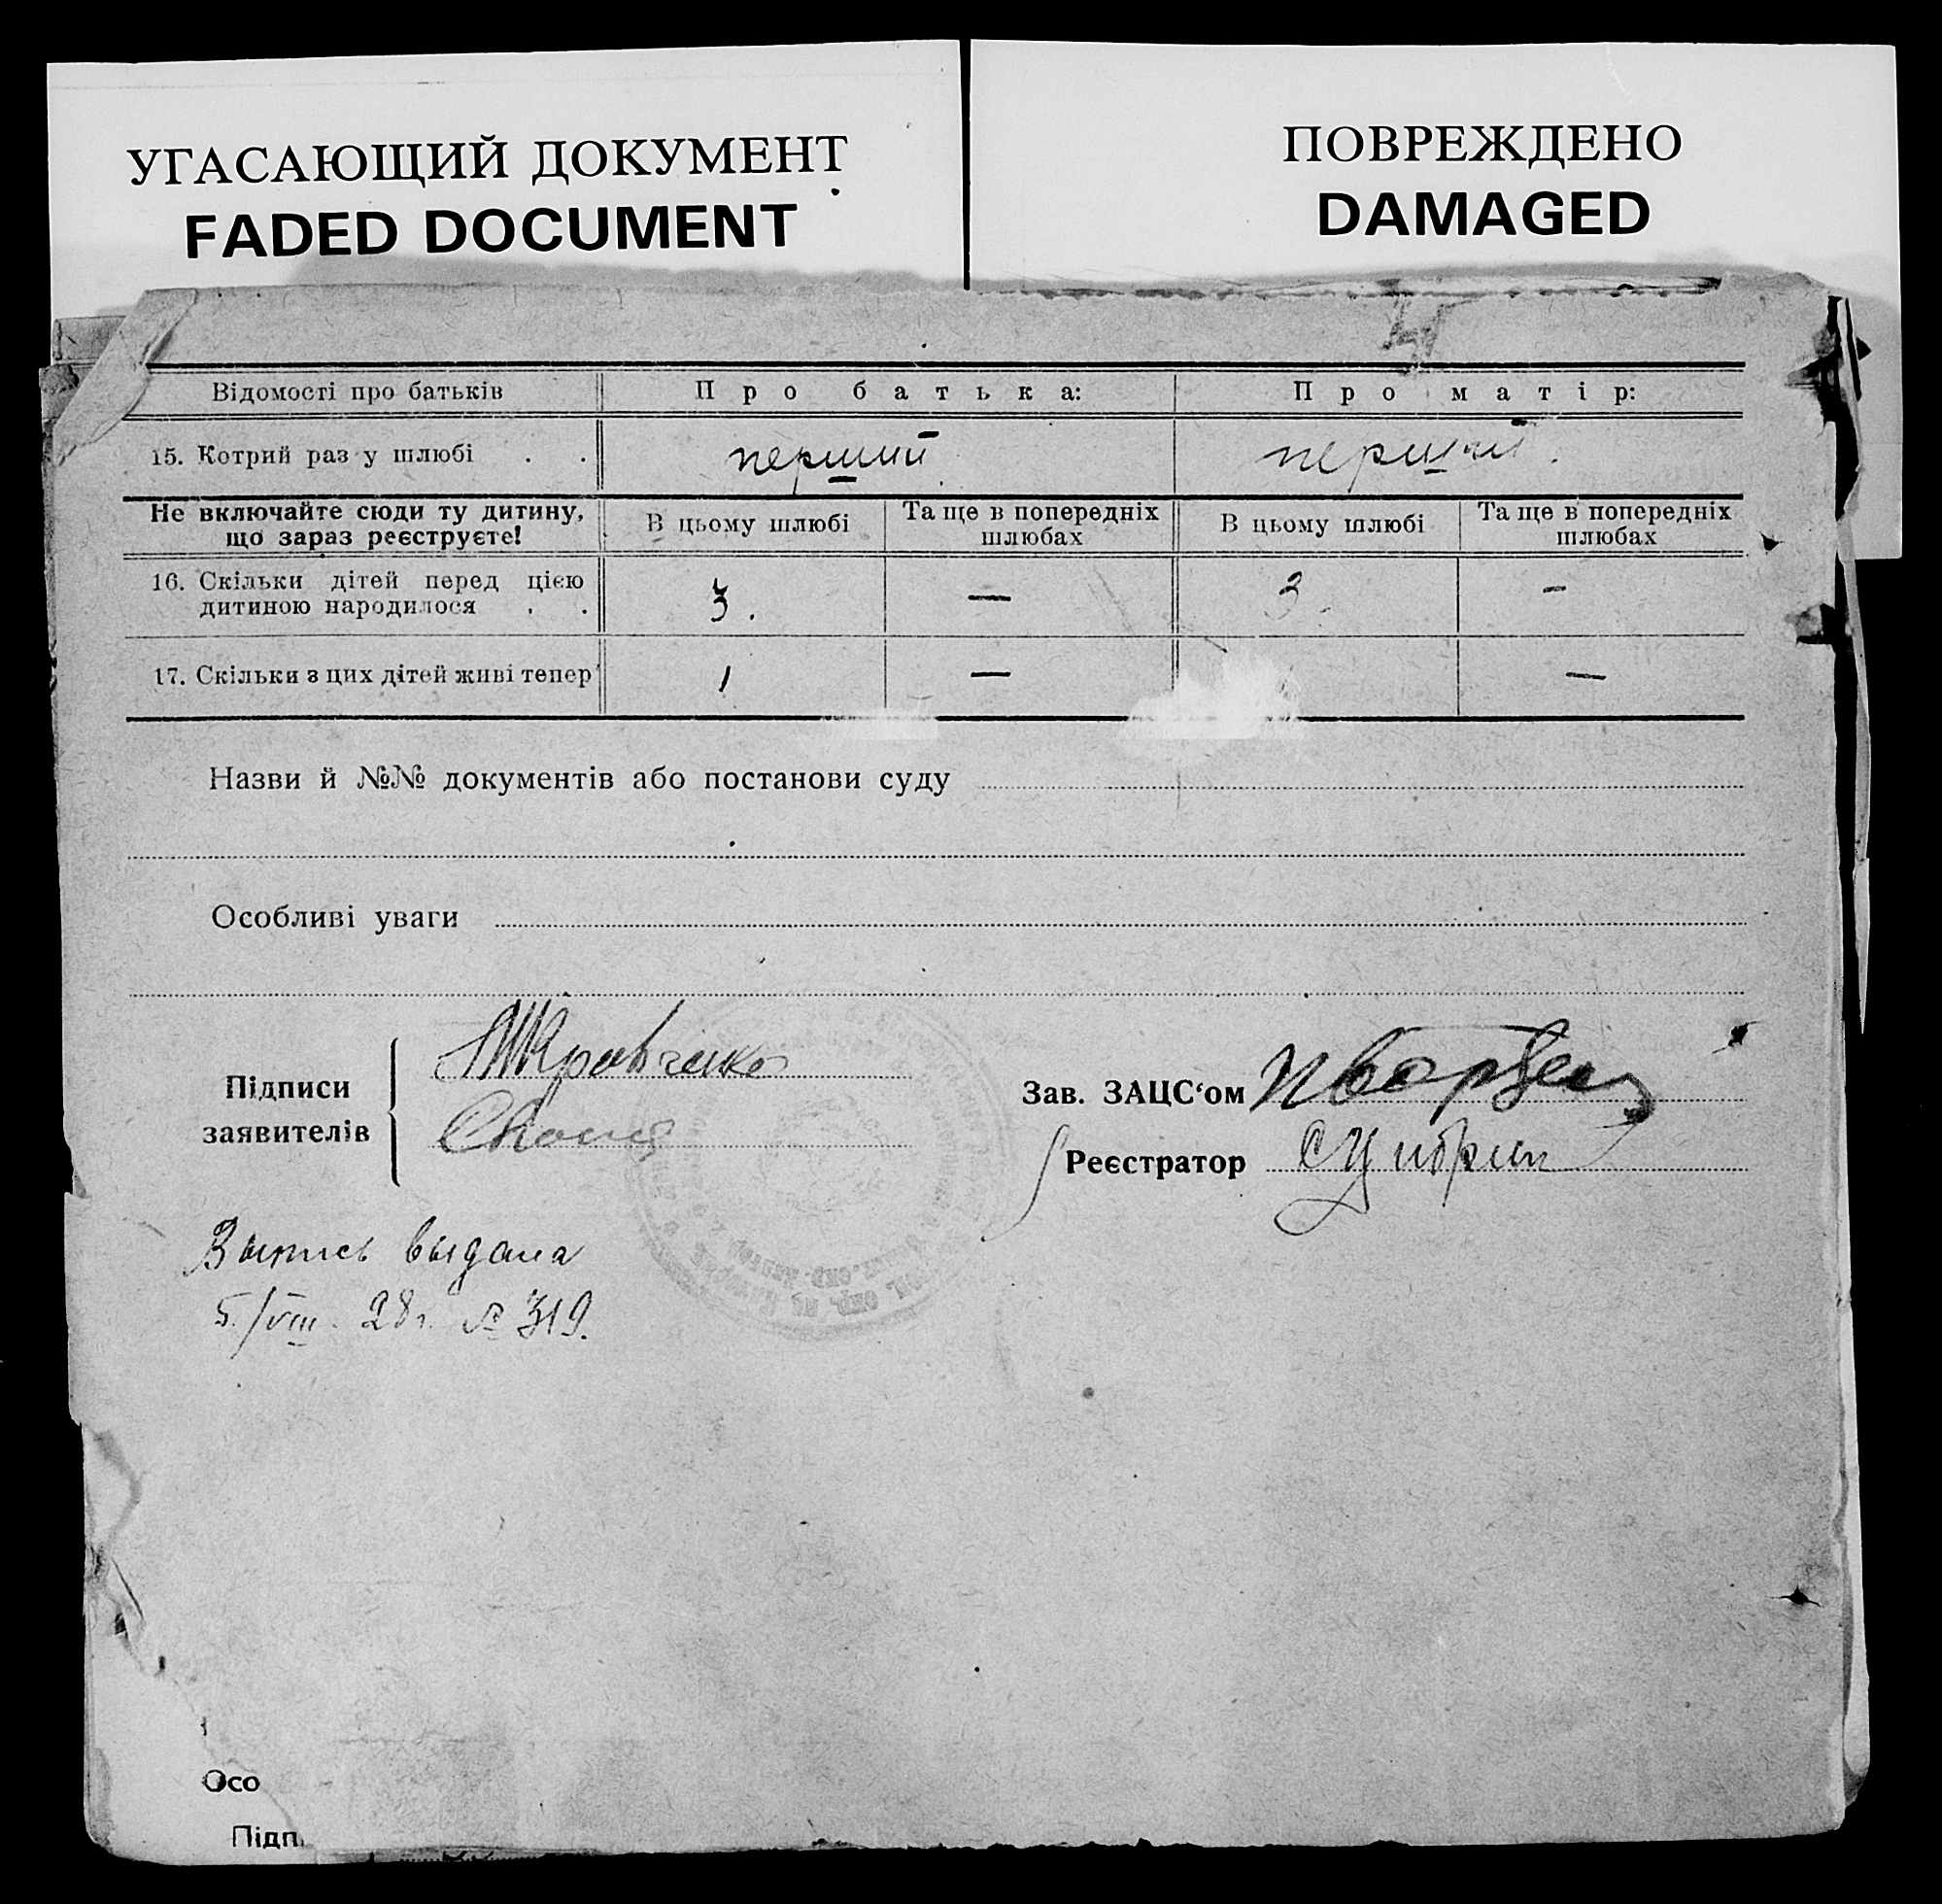 УГАСАЮЩИЙ ДОКУМЕНТ
FADED DOCUMENT
ПОВРЕЖДЕНО
DAMAGED
Відомості про батьків Про батька: Про матір:
15. Котрий раз у шлюбі . . перший перший.
Не включайте сюди ту дитину, що зараз реєструєте! В цьому шлюбі Та ще в попередніх шлюбах В цьому шлюбі Та ще в попередніх шлюбах
16. Скільки дітей перед цією
дитиною народилося . . 3. — 3. —
17. Скільки з цих дітей живі тепер 1 — —
Назви й №№ документів або постанови суду
Особливі уваги
Підписи
заявителів
Кравченко
Зав. ЗАЦС‘ом
Реєстратор
Выпись выдана
5./VIII. 28 г. № 319.
Осо
Підп